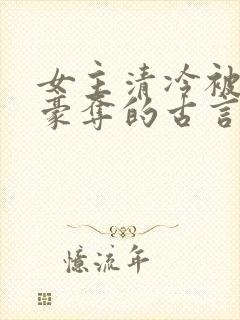 女主清冷被
豪夺的古言
憶流年